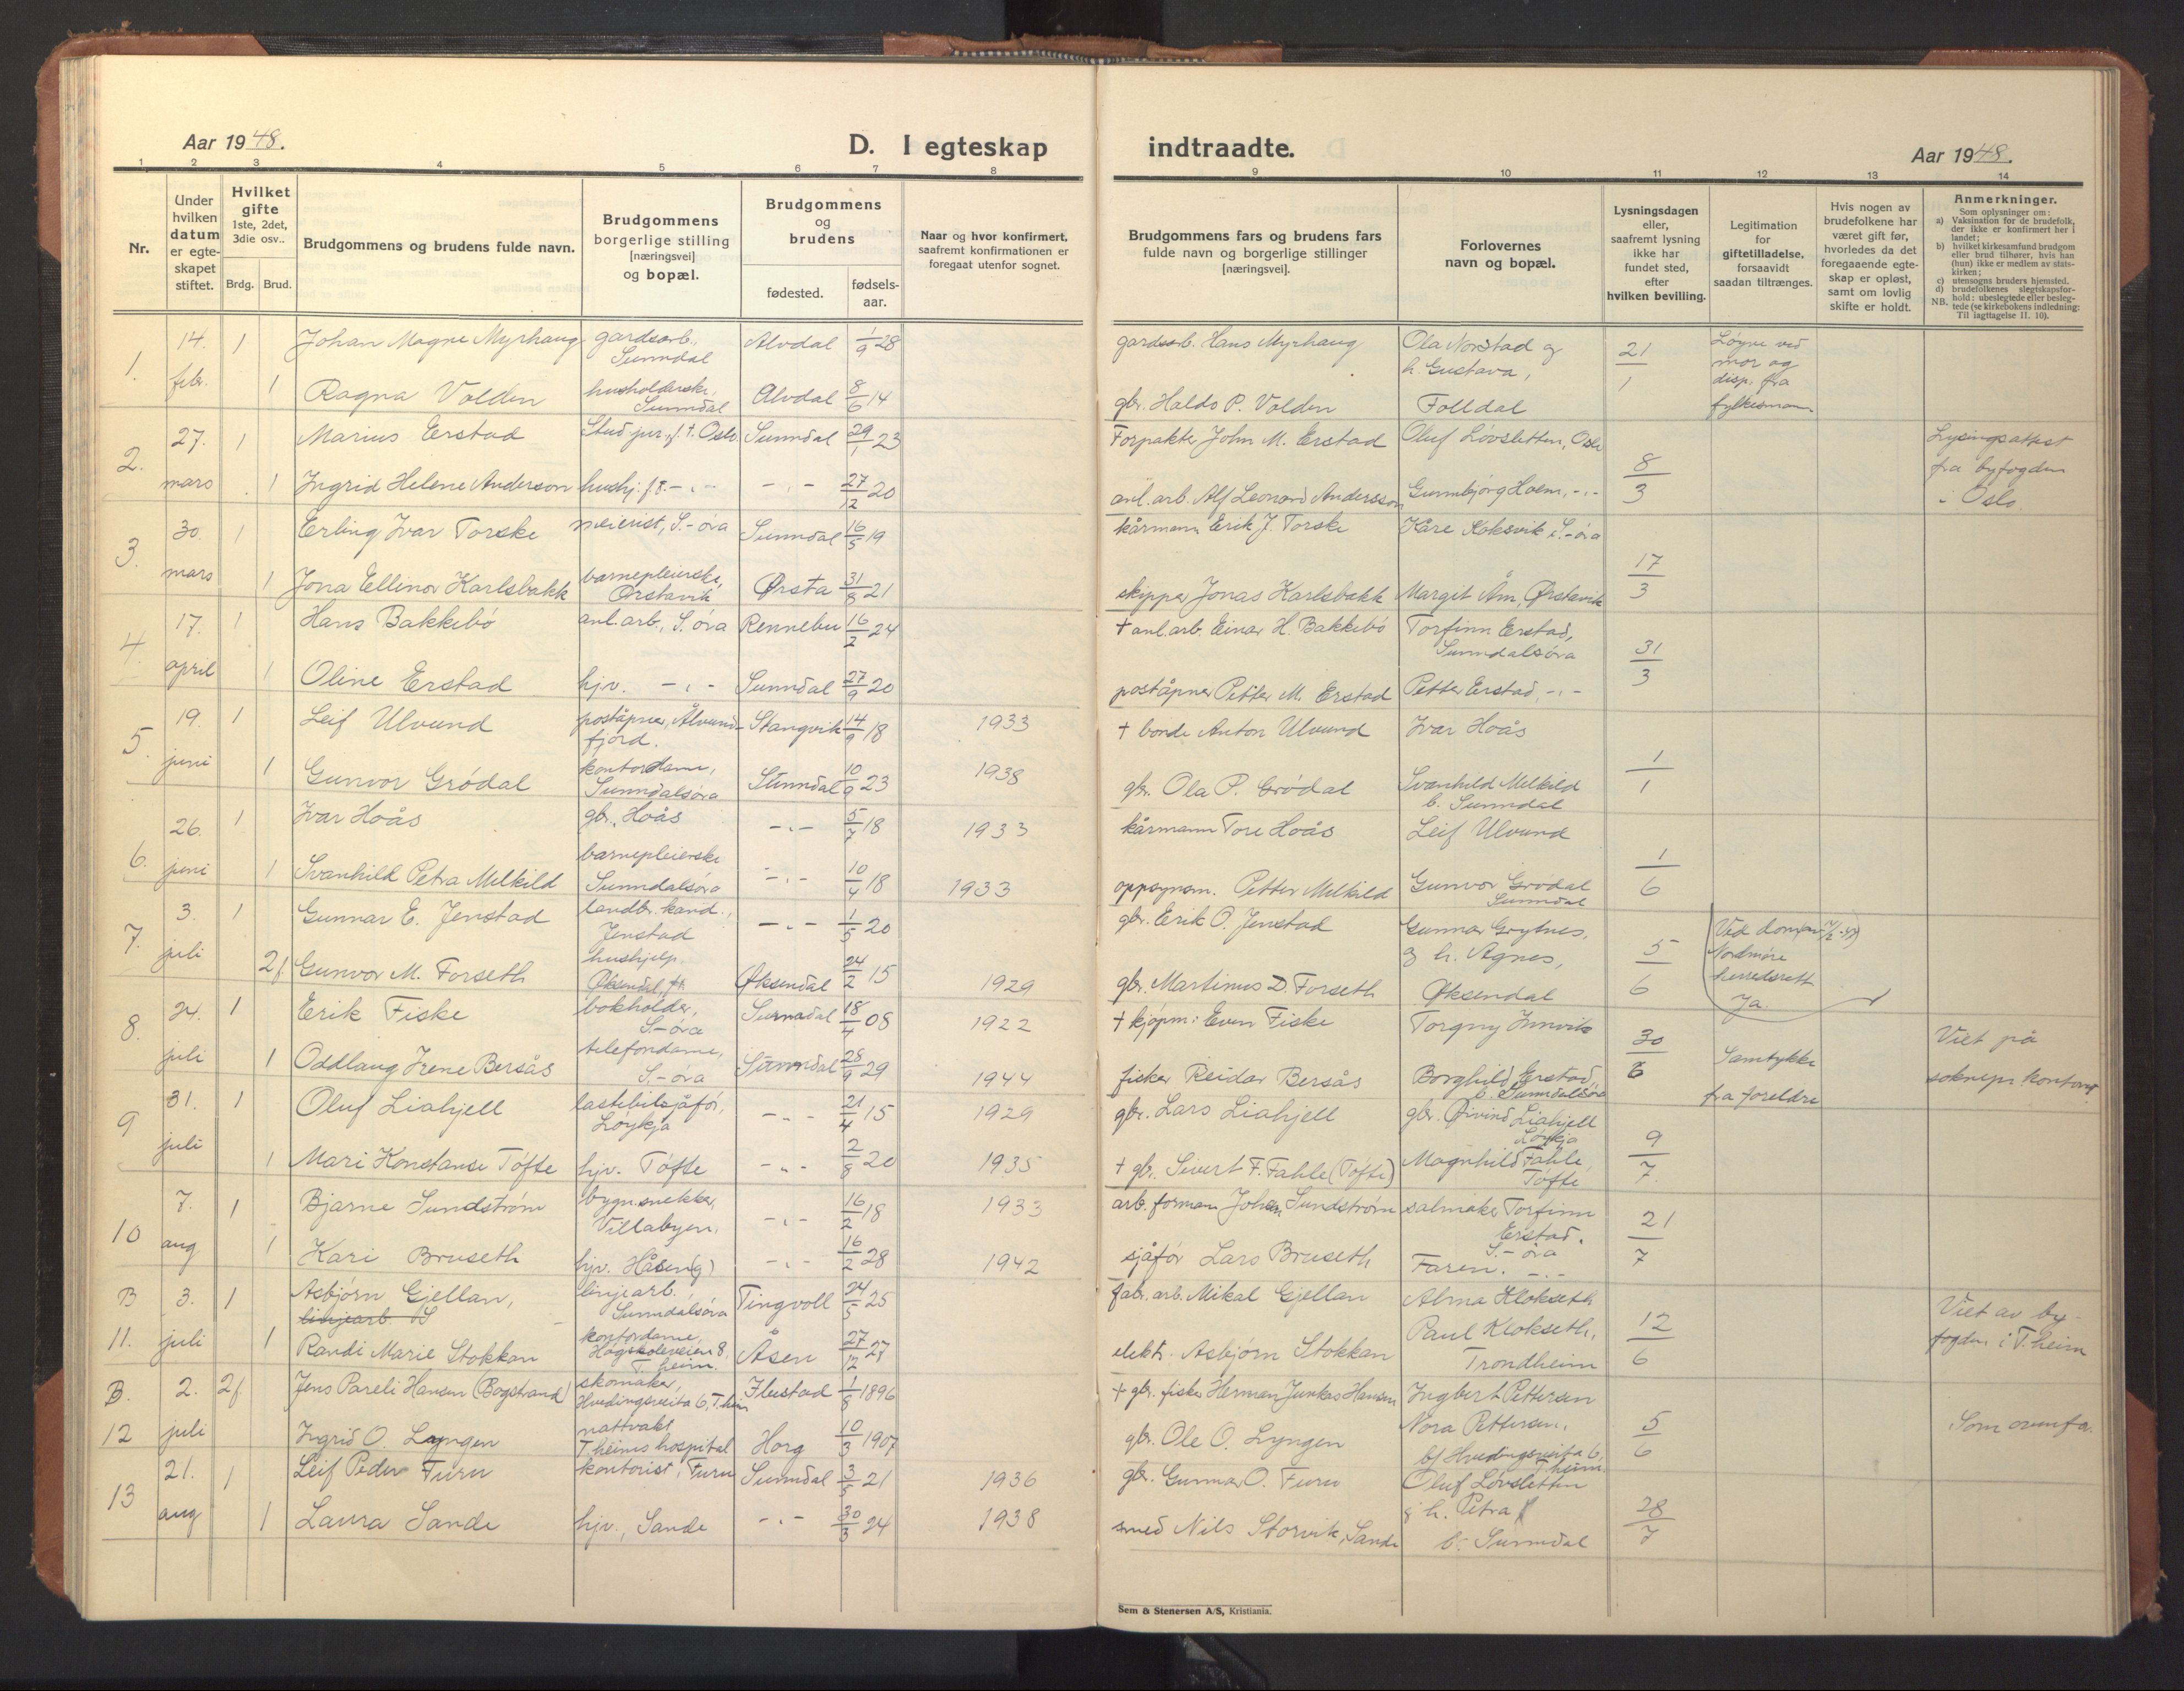 Aar 1948.
D. I egteskap indtraadte.
Aar 1948.
1 2 3 4 5 6 7 8 9 10 11 12 13 14
Nr.
Under hvilken datum er egteskapet stiftet.
Hvilket gifte 1ste, 2det, 3die osv..
Brdg. Brud.
Brudgommens og brudens fulde navn.
Brudgommens borgerlige stilling [næringsvei] og bopæl.
Brudgommens og brudens
fødested. fødselsaar.
Naar og hvor konfirmert, saafremt konfirmationen er foregaat utenfor sognet.
Brudgommens fars og brudens fars fulde navn og borgerlige stillinger [næringsvei].
Forlovernes navn og bopæl.
Lysningsdagen eller, saafremt lysning ikke har fundet sted, efter hvilken bevilling.
Legitimation for giftetilladelse, forsaavidt saadan tiltrænges.
Hvis nogen av brudefolkene har været gift før, hvorledes da det foregaaende egteskap er opløst, samt om lovlig skifte er holdt.
Anmerkninger.
Som oplysninger om:
a) Vaksination for de brudefolk, der ikke er konfirmert her i landet;
b) hvilket kirkesamfund brudgom eller brud tilhører, hvis han (hun) ikke er medlem av statskirken;
c) utensogns bruders hjemsted.
d) brudefolkenes slegtskapsforhold: ubeslegtede eller beslegtede (se kirkebokens indledning: Til iagttagelse II. 10).
NB.
1. 14. febr. 1 Johan Magne Myrhaug gardsarb., Sunndal Alvdal 1/9 28 gardsarb. Hans Myrhaug Ola Norstad og h. Gustava, 21/1 Løyve ved mor og disp. fra fylkesmann
1 Ragna Volden husholderske, Sunndal Alvdal 8/6 14 gbr. Haldo P. Volden Folldal
2. 27. mars 1 Marius Erstad Stud jur., f.t. Oslo Sunndal 29/1 23 Forpakter John M. Erstad Oluf Løvsletten, Oslo 8/3 Lysingsattest fra byfogden i Oslo.
1 Ingrid Helene Anderson hushj. f.t. -,- -,- 27/12 20 anl.arb. Alf Leonard Andersson Gunnbjørg Hoem, -,-
3. 30. mars 1 Erling Ivar Torske meierist, S.-øra Sunndal 16/5 19 kårmann Erik J. Torske Kåre Koksvik S.-øra 17/3
1 Jona Ellinor Karlsbakk barnepleierske, Ørstavik Ørsta 31/8 21 skipper Jonas Karlsbakk Margit Åm, Ørstavik
4. 17. april 1 Hans Bakkebø anl.arb., S.øra Rennebu 16/2 24 + anl.arb. Einar H. Bakkebø Torfinn Erstad, Sunndalsøra 31/3
1 Oline Erstad hjv. -,- Sunndal 27/9 20 poståpner Petter M. Erstad Petter Erstad, -,-
5. 19. juni 1 Leif Ulvund poståpner, Ålvundfjord. Stangvik 14/9 18 1933 + bonde Anton Ulvund Ivar Hoås 1/1
1 Gunvor Grødal kontordame, Sunndalsøra Sunndal 10/9 23 1938 gbr. Ola P. Grødal Svanhild Melkild b. Sunndal
6. 26. juni 1 Ivar Hoås gbr., Hoås -,- 5/7 18 1933 kårmann Tore Hoås Leif Ulvund 1/6
1 Svanhild Petra Melkild barnepleierske Sunndalsøra -,- 10/4 18 1933 oppsynsm. Petter Melkild Gunvor Grødal Sunndal
7. 3. juli 1 Gunnar E. Jenstad landbr. kand., Jenstad -,- 1/5 20 gbr. Erik O. Jenstad Gunnar Grytnes, og h. Agnes, 5/6 Nordmøre herredsrett Ja.
2f Gunvor M. Forseth hushjelp. Øksendal Øksendal 24/2 15 1929 gbr. Martinus D. Forseth Øksendal
8. 24. juli 1 Erik Fiske bokholder, S.-øra Surnadal 18/4 08 1922 + kjøpm: Even Fiske Torgny Innvik 30/6 Samtykke fra foreldre Viet på soknepr. kontor
1 Oddlaug Irene Bersås telefondame, S.-øra Sunndal 28/9 29 1944 fisker Reidar Bersås Borghild Erstad, b. Sunndalsøra
9 31. juli 1 Oluf Liahjell lastebilsjåfør, Løykja -,- 21/4 15 1929 gbr. Lars Liahjell gbr. Øivind Liahjell Løykja 9/7.
1 Mari Konstanse Tøfte hjv. Tøfte -,- 2/8 20 1935 + gbr. Sivert F. Fahle (Tøfte) Magnhild Fahle, Tøfte
10 7. aug 1 Bjarne Sundstrøm bygn.snekker, Villabyen, -,- 16/2 18 1933 arb. formann Johan Sundstrøm salmaker Torfinn Erstad. S.-øra 21/7
1 Kari Bruseth hjv. Håsen(g) -,- 16/2 28 1942 sjåfør Lars Bruseth Faren. -,-
B 11. 3. juli 1 Asbjørn Gjellan, linjearb. S linjearb., Sunndalsøra Tingvoll 24/5 25 fabr. arb. Mikal Gjellan Alma Klokseth 12/6 Viet av byfogden i T.heim
1 Randi Marie Stokkan kontordame, Høgskoleveien 8, T.heim. Åsen 27/12 27 elektr. Asbjørn Stokkan Paul Klokseth, Trondheim
B. 12 2. juli 2f Jens Pareli Hansen (Bogstrand) skomaker, Hvedingsveita 6, T.heim Flustad 1/8 1896 + gbr. fisker Herman Junkas Hansen Ingbert Pettersen 5/6 Som ovenfor.
Ingrid O. Lyngen nattvakt T.heims hospital Horg 10/3 1907 gbr. Ole O. Lyngen Nora Pettersen, b/ Hvedingsveita 6, T.heim.
13 21. aug 1 Leif Peder Furu kontorist, Furu Sunndal 3/5 21 1936 gbr. Gunnar O. Furu Oluf Løvsletten 28/7
1 Laura Sande hjv., Sande -,- 30/3 24 1938 smed Nils Storvik, Sande g h. Petra b. Sunndal
Sem & Stenersen A/S, Kristiania.